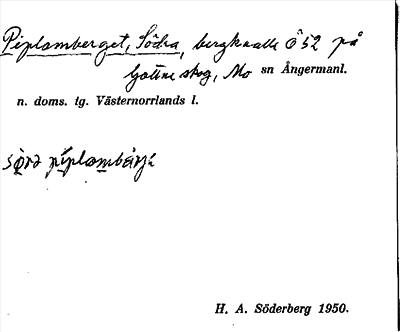 Piplamberget, Södra, bergknalle Ö 52 på
Gottne skog, Mo sn Ångermanl.
n. doms. tg. Västernorrlands l.
H. A. Söderberg 1950.